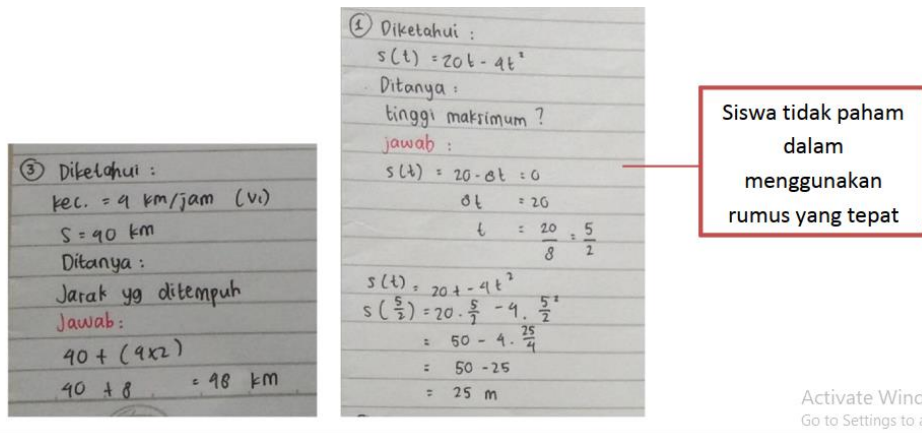 ③ Diketahui :
kec. = 4 km/jam (V₁)
S = 40 km
Ditanya :
Jarak yg ditempuh
Jawab :
40 + (4x2)
40 + 8 = 48 km
① Diketahui :
s(t) = 20t - 4t²
Ditanya :
tinggi maksimum ?
jawab :
s(t) = 20 - 8t = 0
8t = 20
t = 20/8 = 5/2
s(t) = 20t - 4t²
s(5/2) = 20 . 5/2 - 4 . 5/2²
= 50 - 4 . 25/4
= 50 - 25
= 25 m
Siswa tidak paham
dalam
menggunakan
rumus yang tepat
Activate Winc
Go to Settings to